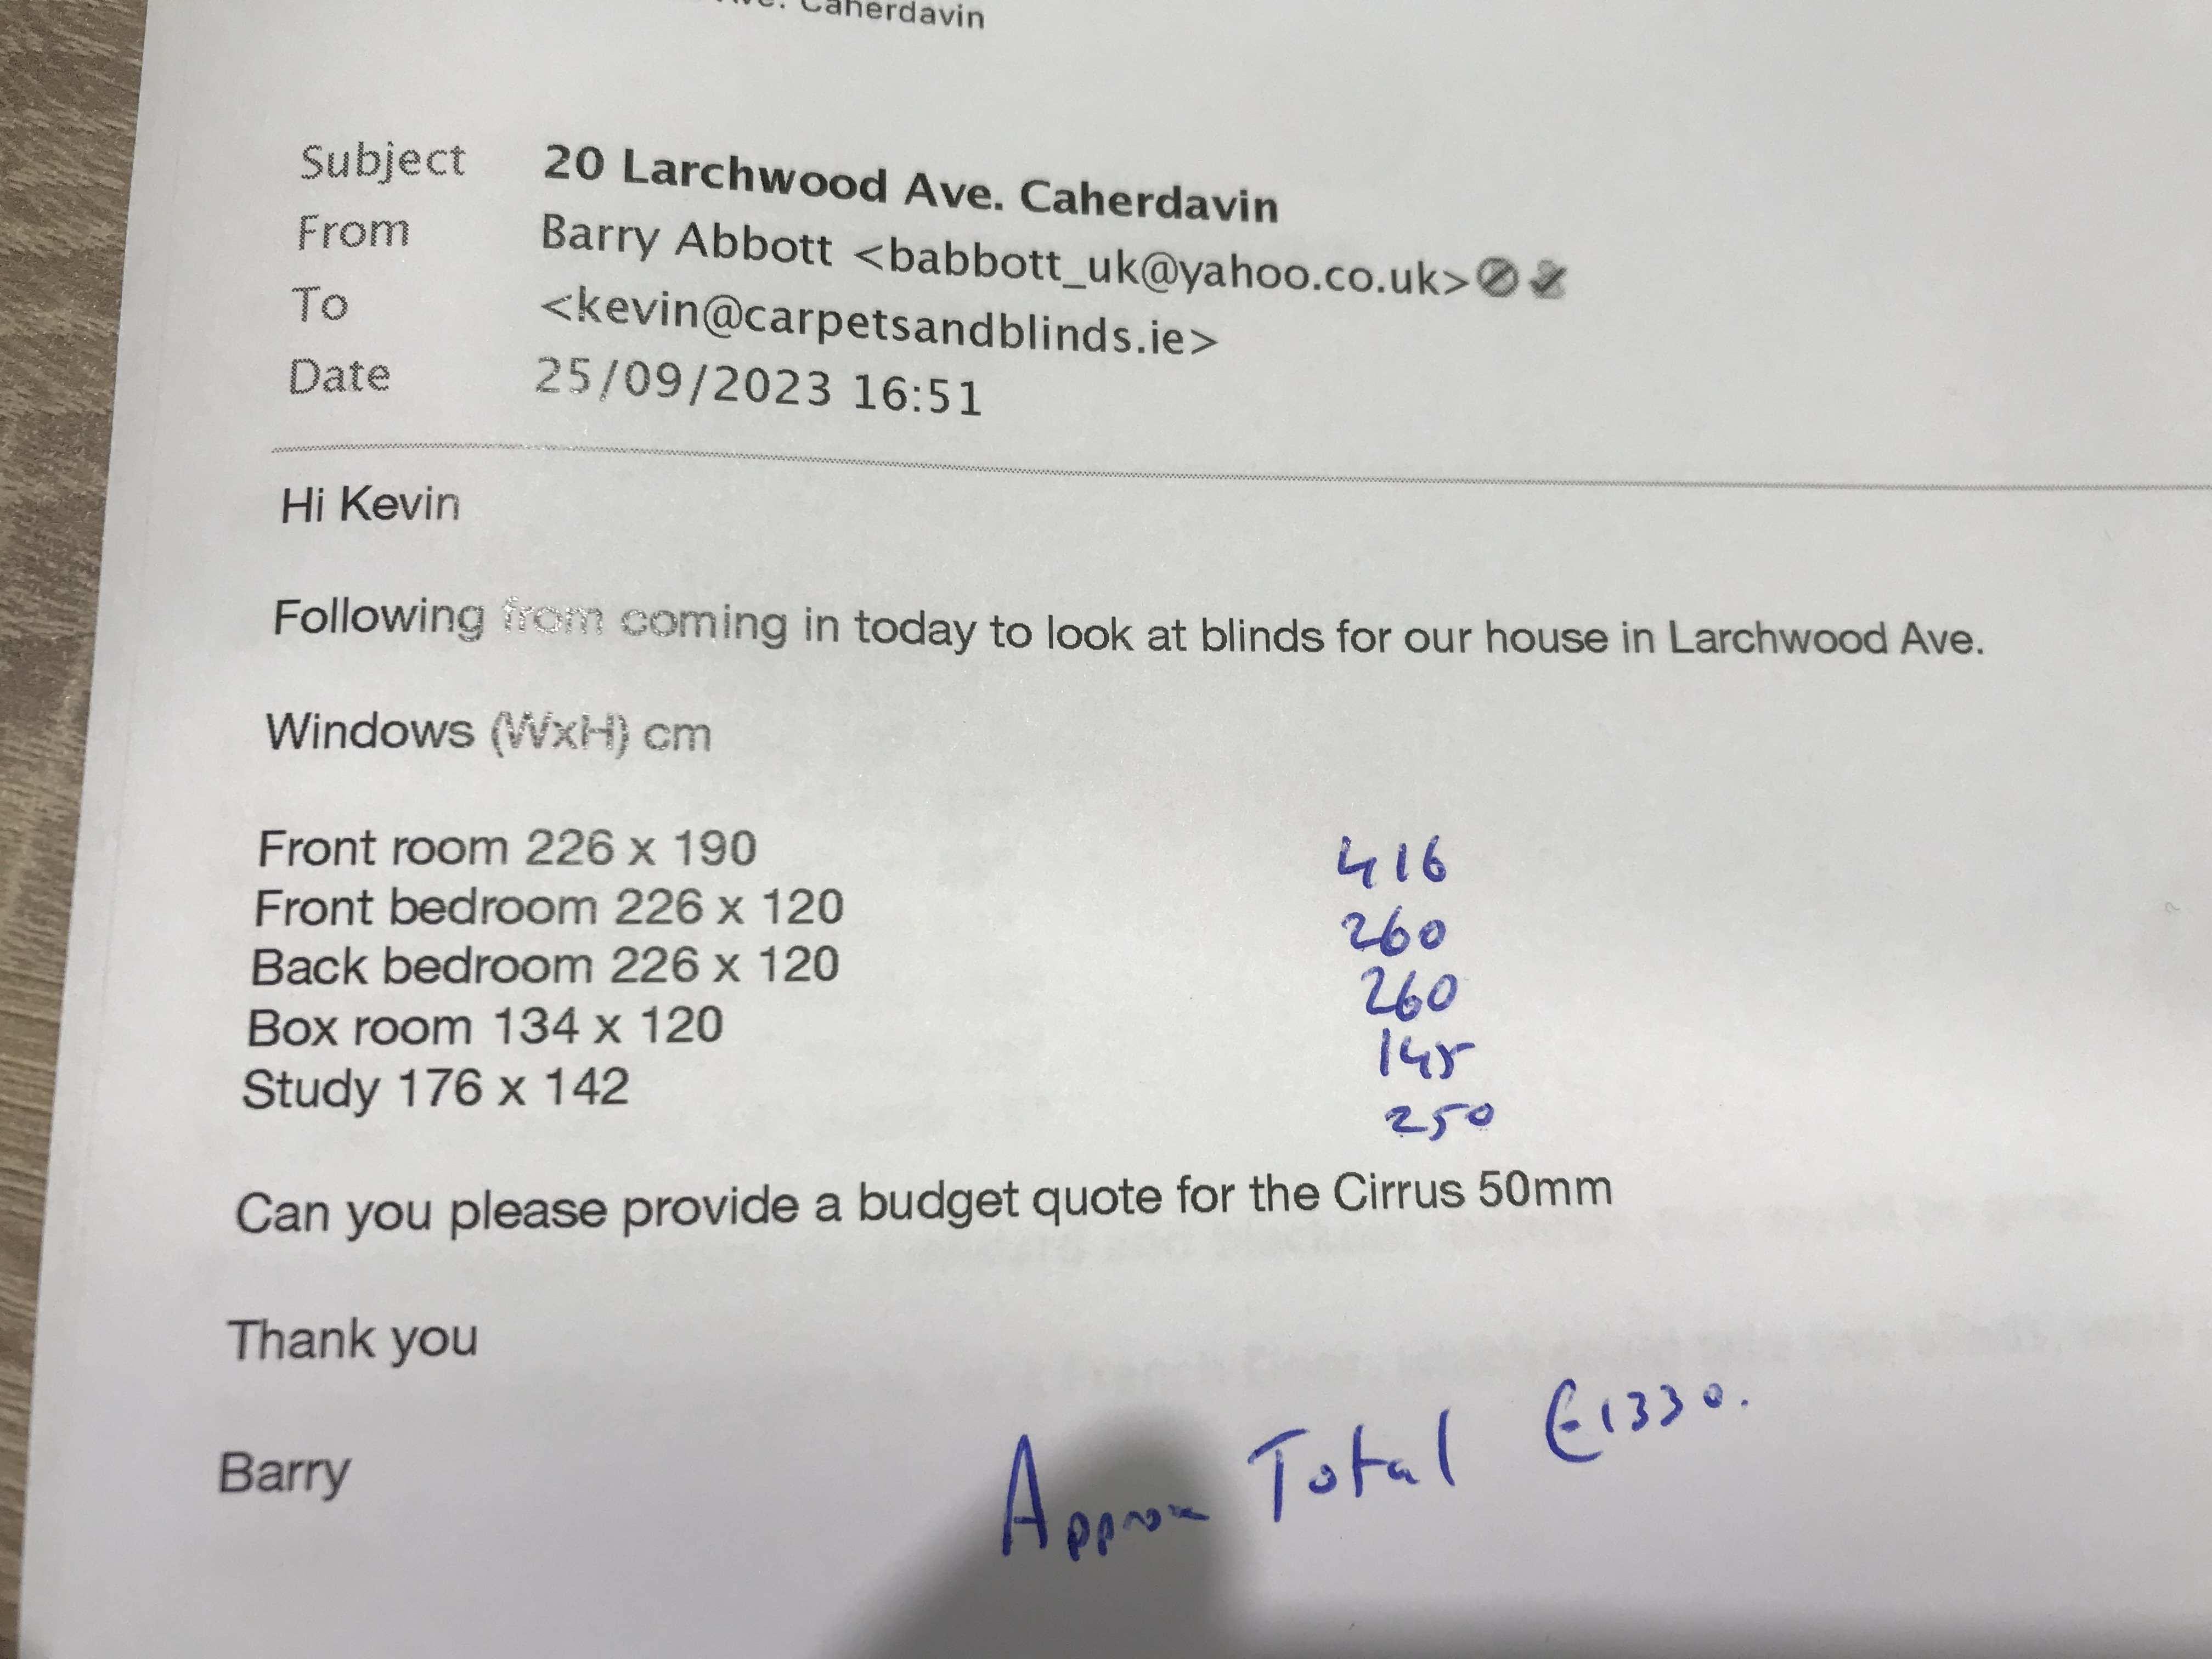 Ave. Caherdavin
Subject 20 Larchwood Ave. Caherdavin
From Barry Abbott <babbott_uk@yahoo.co.uk>
To <kevin@carpetsandblinds.ie>
Date 25/09/2023 16:51
Hi Kevin
Following from coming in today to look at blinds for our house in Larchwood Ave.
Windows (WxH) cm
Front room 226 x 190 416
Front bedroom 226 x 120 260
Back bedroom 226 x 120 260
Box room 134 x 120 145
Study 176 x 142 250
Can you please provide a budget quote for the Cirrus 50mm
Thank you
Barry
Approx Total €1330.